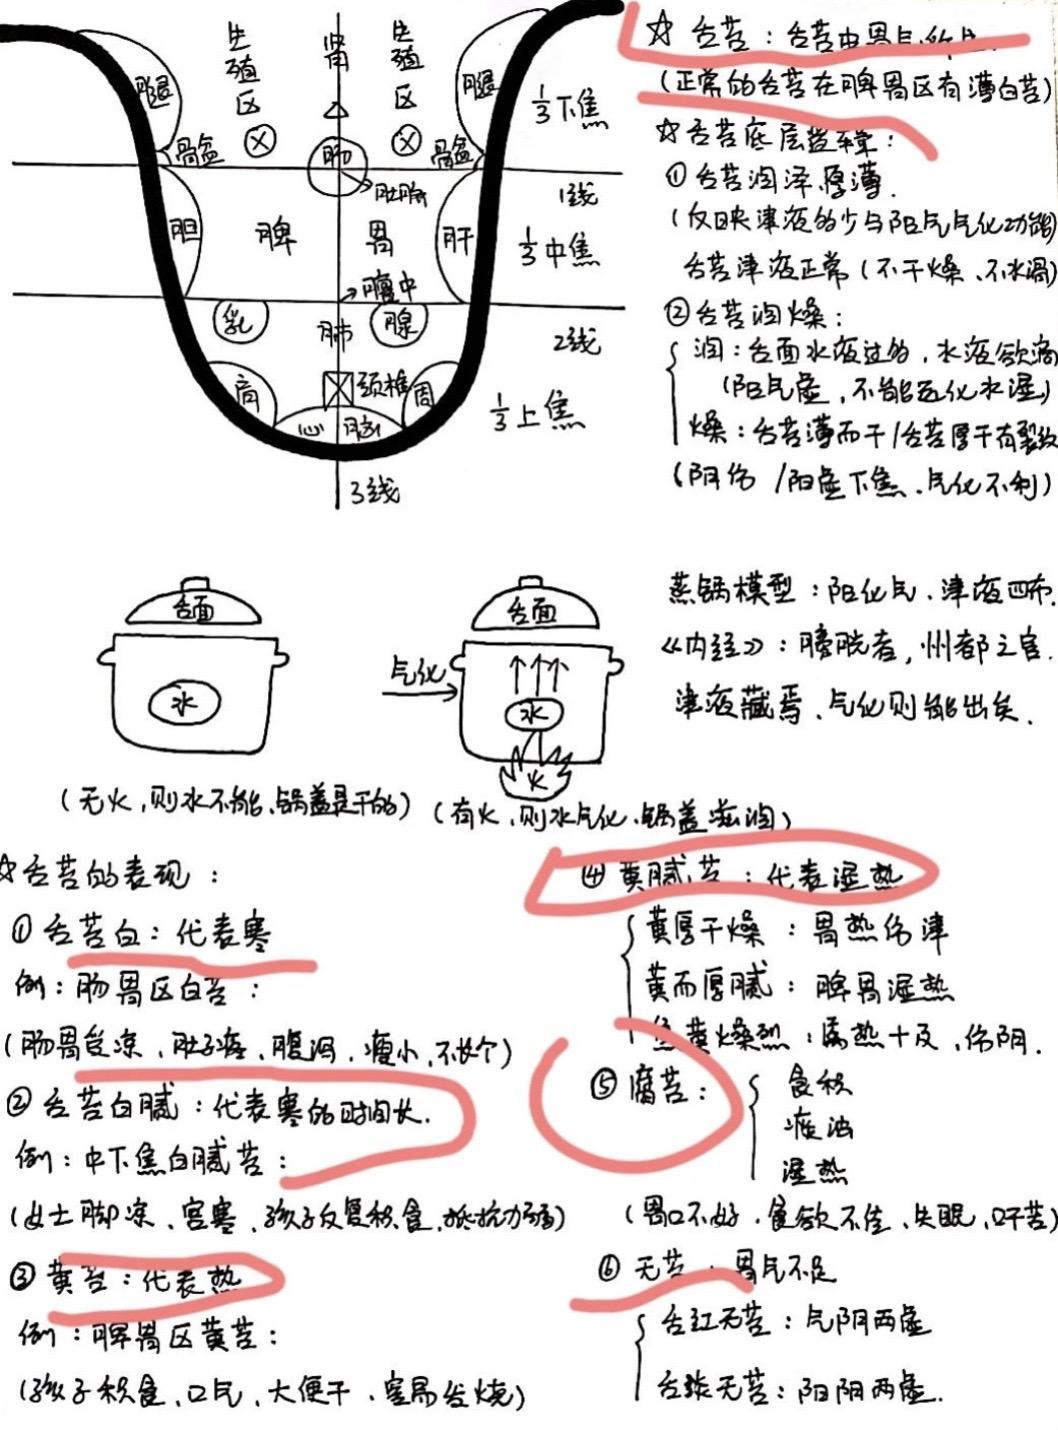 生殖区
肾
生殖区
腿
腿
1/3下焦
骨盆
肠
骨盆
肚脐
1线
胆
脾
胃
肝
1/3中焦
膻中
乳
肺
腺
2线
肩
颈椎
周
1/3上焦
心
脑
3线
☆ 舌苔：舌苔由胃气所生
(正常的舌苔在脾胃区有薄白苔)
☆舌苔底层逻辑：
①舌苔润泽厚薄.
(反映津液的少与阳气气化功能)
舌苔津液正常(不干燥、不水滑)
②舌苔润燥：
润：舌面水液过的，水液欲滴
(阳气虚，不能运化水湿)
燥：舌苔薄而干/舌苔厚干有裂纹
(阴伤/阳虚下焦、气化不利)
舌面
水
气化
舌面
水
火
(无火,则水不能、锅盖是干的)
(有火、则水气化、锅盖滋润)
蒸锅模型：阳化气、津液四布.
《内经》：膀胱者,州都之官.
津液藏焉、气化则能出矣.
☆舌苔的表现：
①舌苔白：代表寒
例：肠胃区白苔：
(肠胃受凉、肚子疼、腹泻、瘦小、不长个)
②舌苔白腻：代表寒的时间长.
例：中下焦白腻苔：
(女士脚凉、宫寒、孩子反复积食、抵抗力弱)
③黄苔：代表热
例：脾胃区黄苔：
(孩子积食、口气、大便干、容易发烧)
④黄腻苔：代表湿热
黄厚干燥：胃热伤津
黄而厚腻：脾胃湿热
焦黄燥烈：属热十足、伤阴.
⑤腐苔：
食积
痰浊
湿热
(胃口不好、食欲不佳、失眠、口干苦)
⑥无苔：胃气不足
舌红无苔：气阴两虚
舌淡无苔：阳阴两虚.